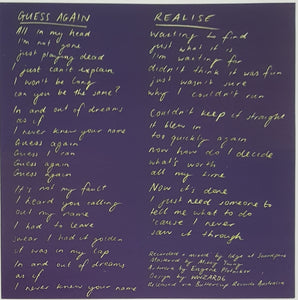 GUESS AGAIN
All in my head
I'm not gone
just playing dead
I just can't explain
I won't be long
can you be the same?
In and out of dreams
as if
I never knew your name
Guess again
Guess again
Guess again
It's not my fault
I heard you calling
out my name
I had to leave
swear I had it golden
it was in my lap
In and out of dreams
as if
I never knew your name
REALISE
waiting to find
just what it is
I'm waiting for
didn't think it was fun
just wasn't sure
why I couldn't run
Couldn't keep it straight
it blew in
too quickly again
now how do I decide
what's worth
all my time
Now it's done
I just need someone to
tell me what to do
'cause I never
saw it through
Recorded + mixed by Edge at Soundpark
Mastered by Mikey Young
Artwork by Eugene
Design by
Released via Buttercup Records Australia